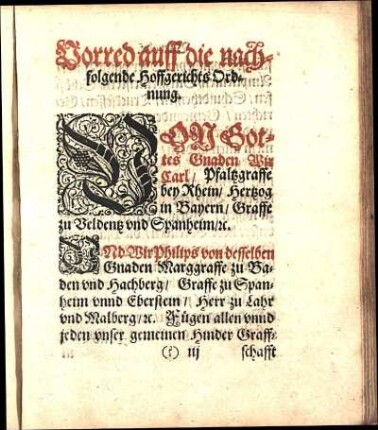 Vorred auff die nach-
folgende Hoffgerichts Ord-
nung.
VON Got-
tes Gnaden Wir
Carl / Pfaltzgraffe
bey Rhein / Hertzog
in Bayern / Graffe
zu Veldentz vnd Spanheim / ꝛc.
VNd Wir Philips von desselben
Gnaden Marggraffe zu Ba-
den vnd Hachberg / Graffe zu Span-
heim vnnd Eberstein / Herr zu Lahr
vnd Malberg / ꝛc. Fügen allen vnnd
jeden vnser gemeinen Hinder Graff-
(?) iij schafft